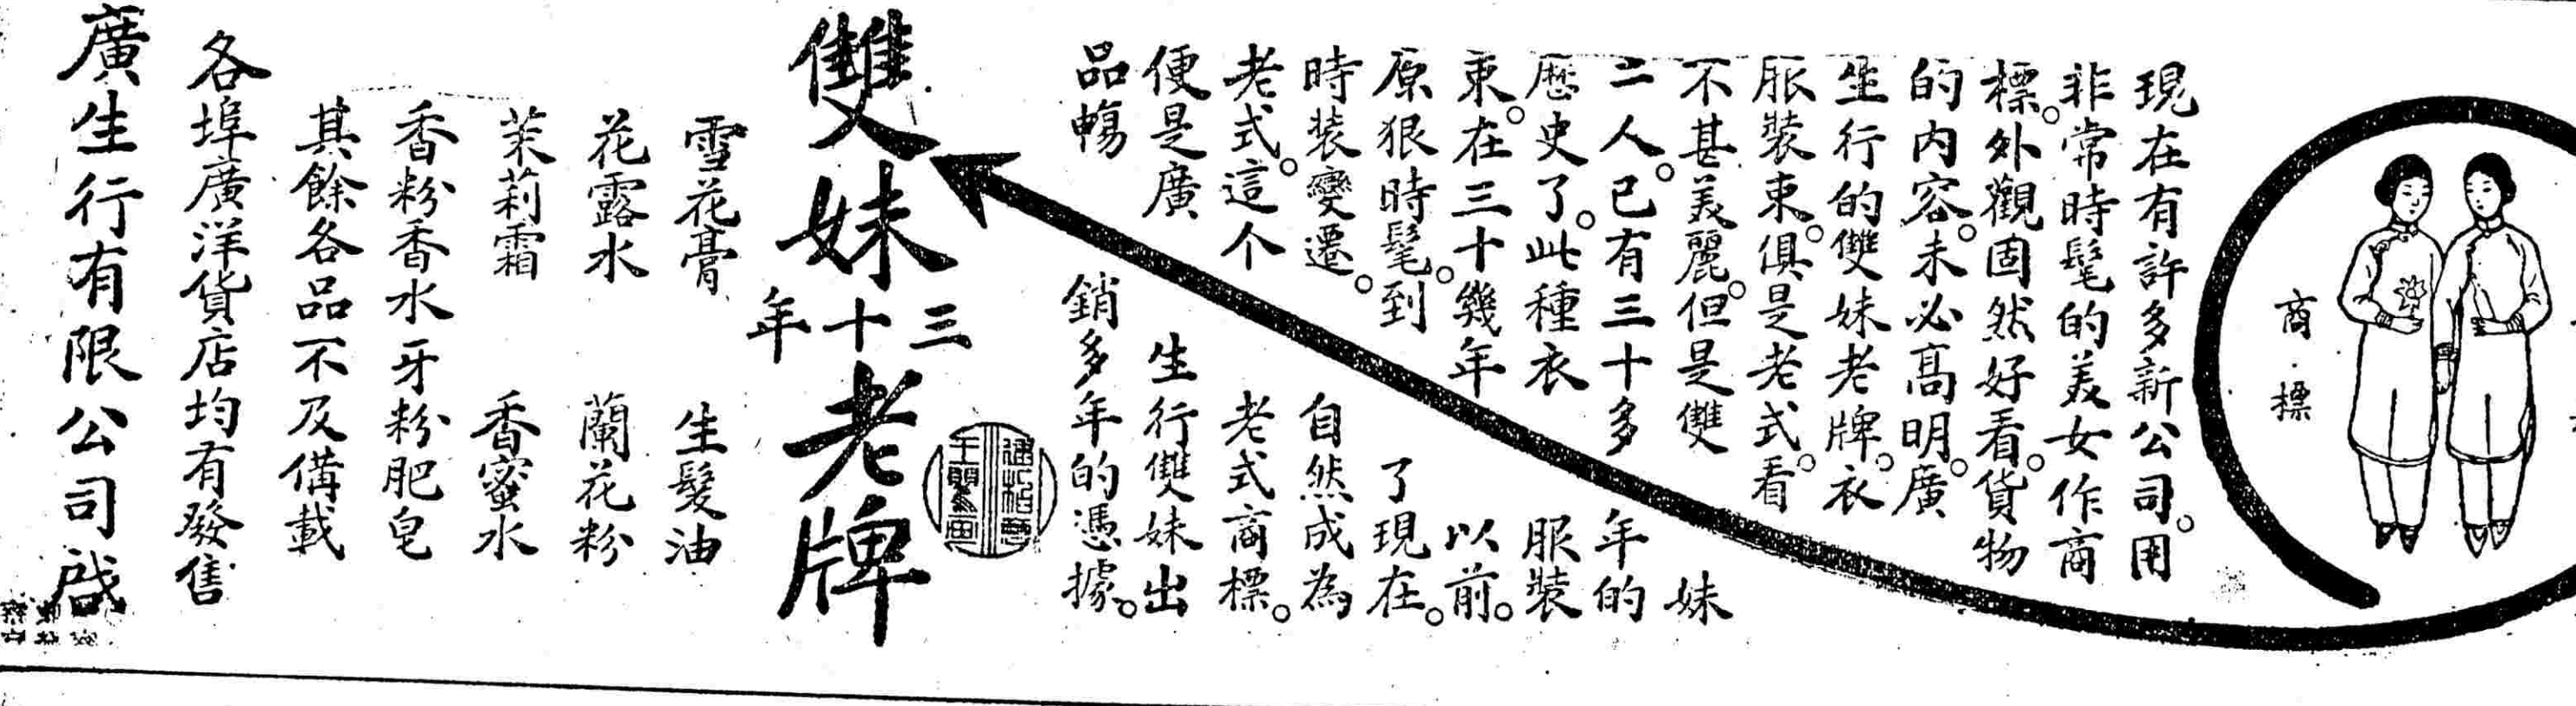 商標
現在有許多新公司。用
非常時髦的美女作商
標。外觀固然好看。貨物
的內容。未必高明。廣
生行的雙妹老牌。衣
服裝束。俱是老式。看
不甚美麗。但是雙妹
二人。已有三十多年的
歷史了。此種衣服裝
束。在三十幾年以前。
原狠時髦。到了現在。
時裝變遷。自然成為
老式。這个老式商標。
便是廣生行雙妹出
品暢銷多年的憑據。
雙妹老牌
三十年
雪花膏 生髮油
花露水 蘭花粉
茉莉霜 香蜜水
香粉香水牙粉肥皂
其餘各品不及備載
各埠廣洋貨店均有發售
廣生行有限公司啟